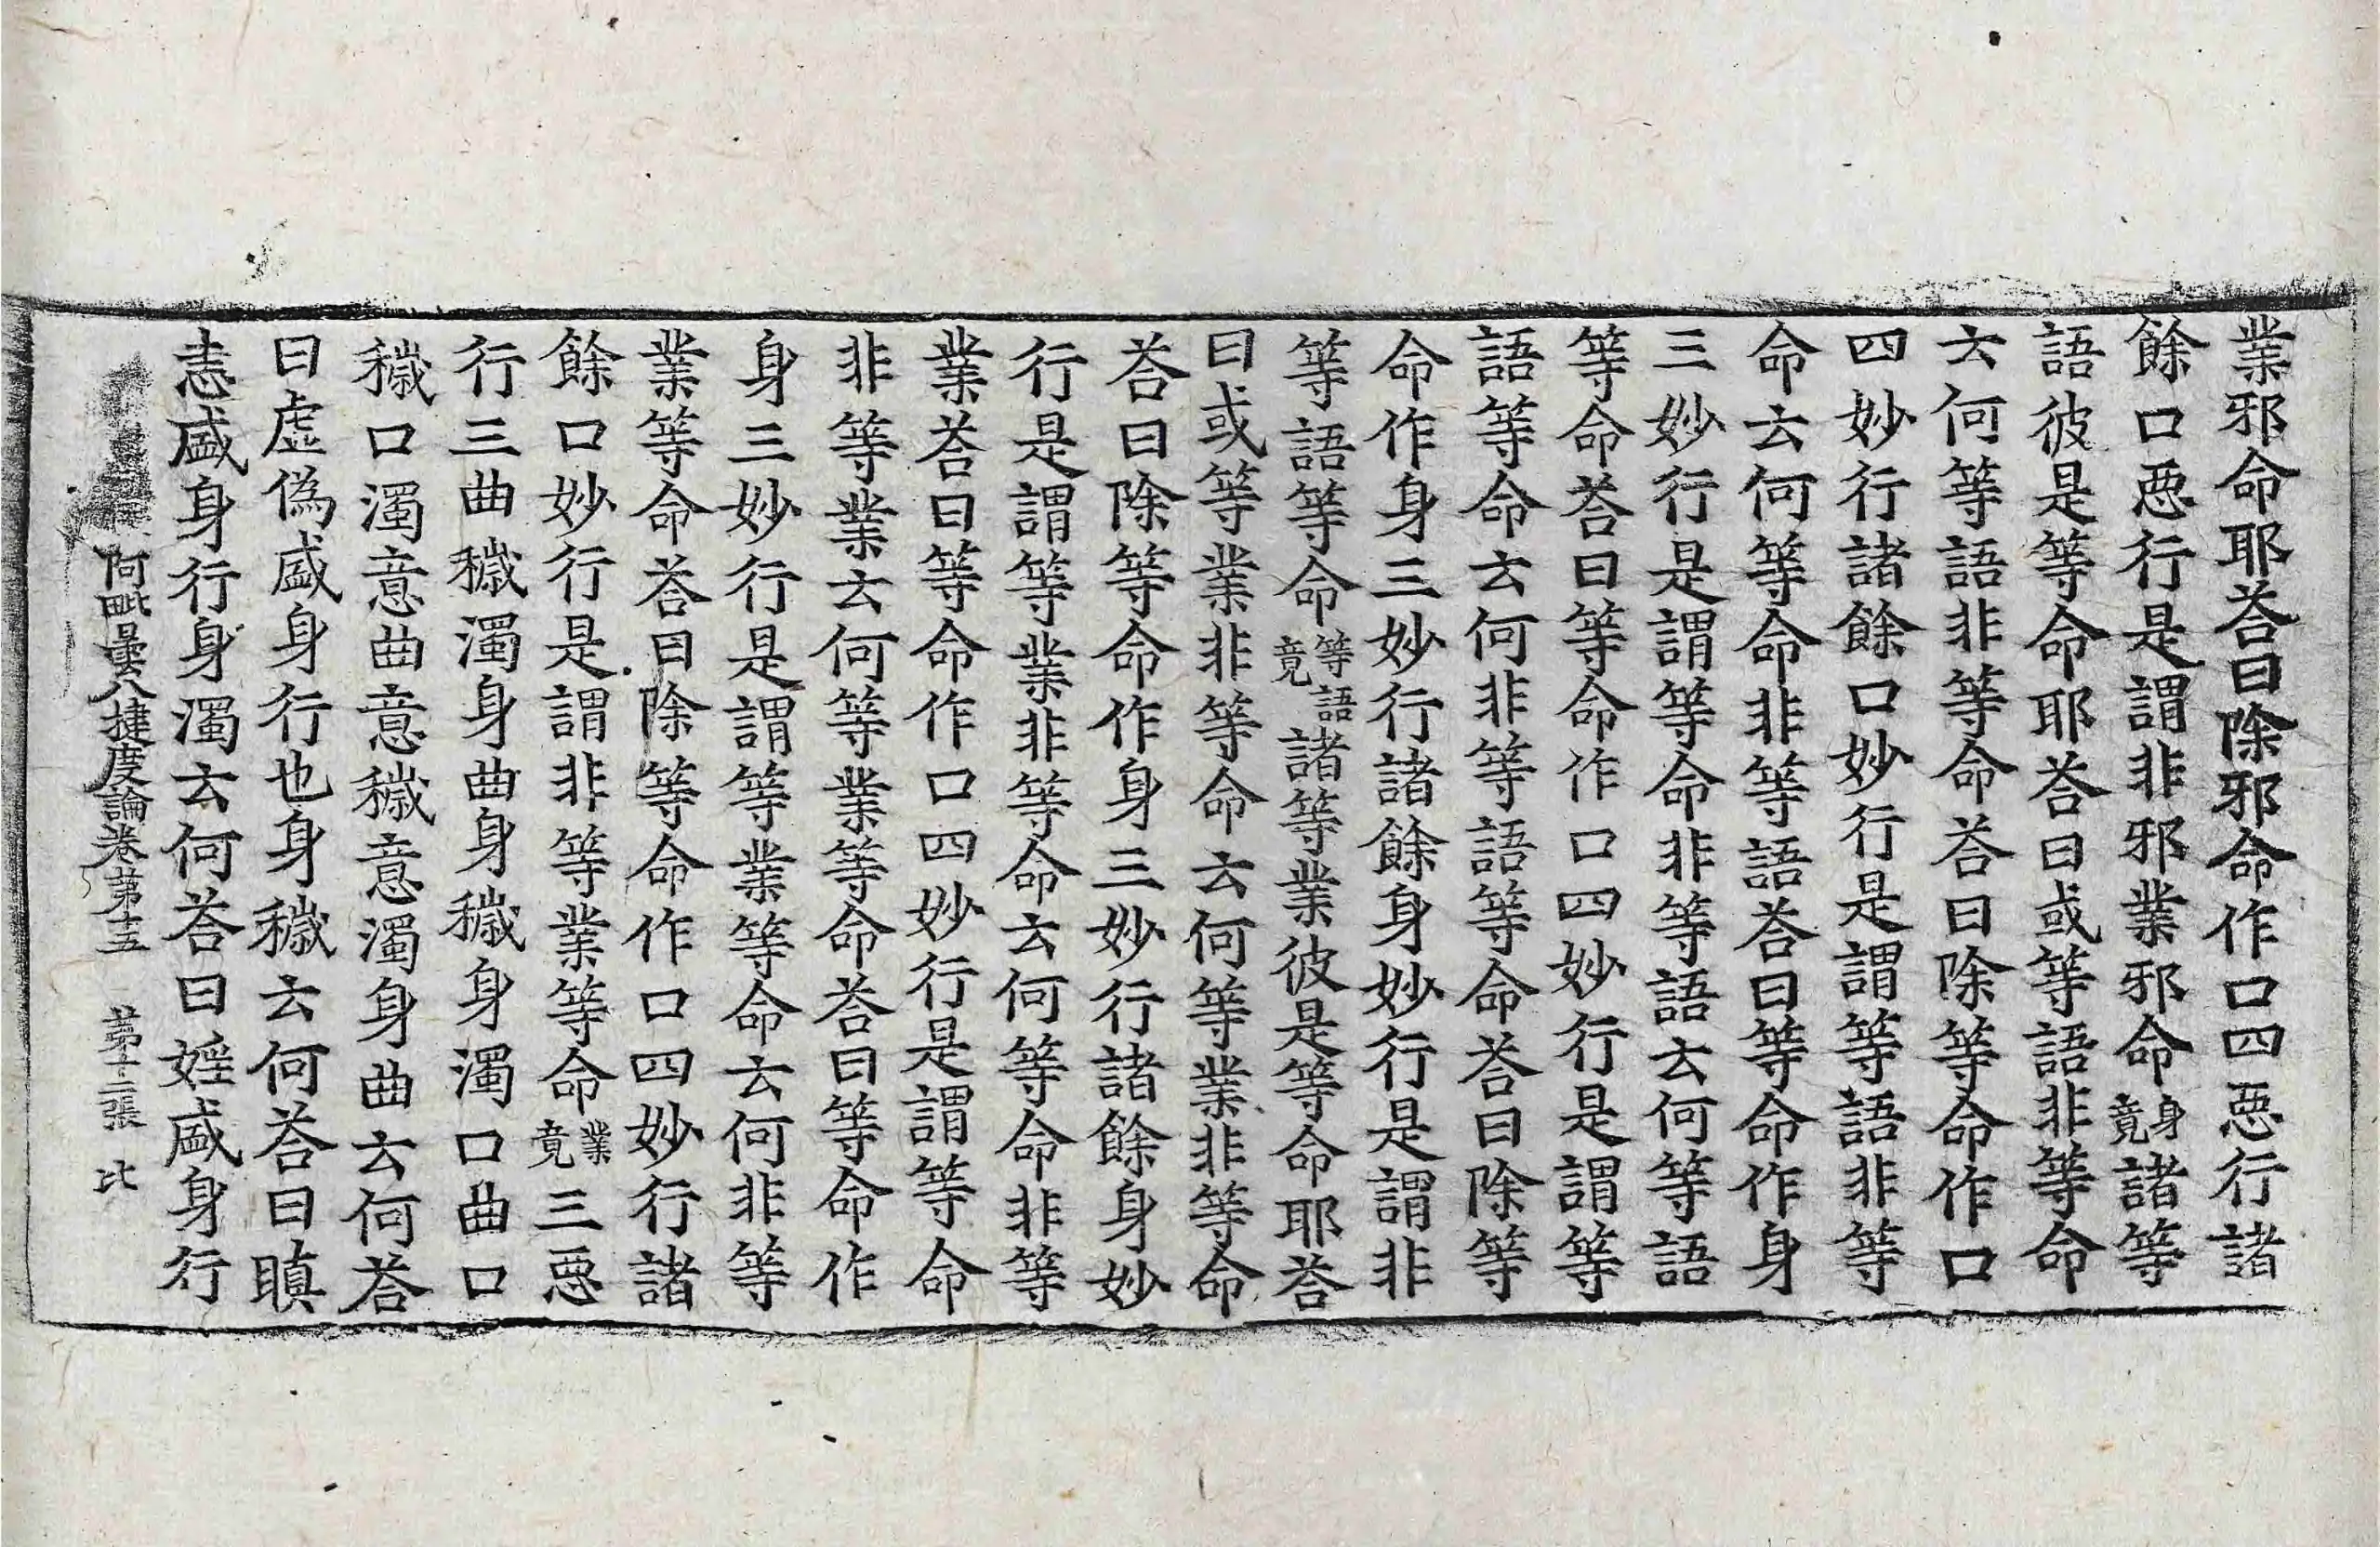 業邪命耶荅曰除邪命作口四惡行諸
餘口惡行是謂非邪業邪命身竟諸等
語彼是等命耶荅曰或等語非等命
云何等語非等命荅曰除等命作口
四妙行諸餘口妙行是謂等語非等
命云何等命非等語荅曰等命作身
三妙行是謂等命非等語云何等語
等命荅曰等命作口四妙行是謂等
語等命云何非等語等命荅曰除等
命作身三妙行諸餘身妙行是謂非
等語等命等語竟諸等業彼是等命耶荅
曰或等業非等命云何等業非等命
荅曰除等命作身三妙行諸餘身妙
行是謂等業非等命云何等命非等
業荅曰等命作口四妙行是謂等命
非等業云何等業等命荅曰等命作
身三妙行是謂等業等命云何非等
業等命荅曰除等命作口四妙行諸
餘口妙行是謂非等業等命業竟三惡
行三曲穢濁身曲身穢身濁口曲口
穢口濁意曲意穢意濁身曲云何荅
曰虛偽盛身行也身穢云何荅曰瞋
恚盛身行身濁云何荅曰婬盛身行
阿毗曇八揵度論卷第十五 第十二張 比